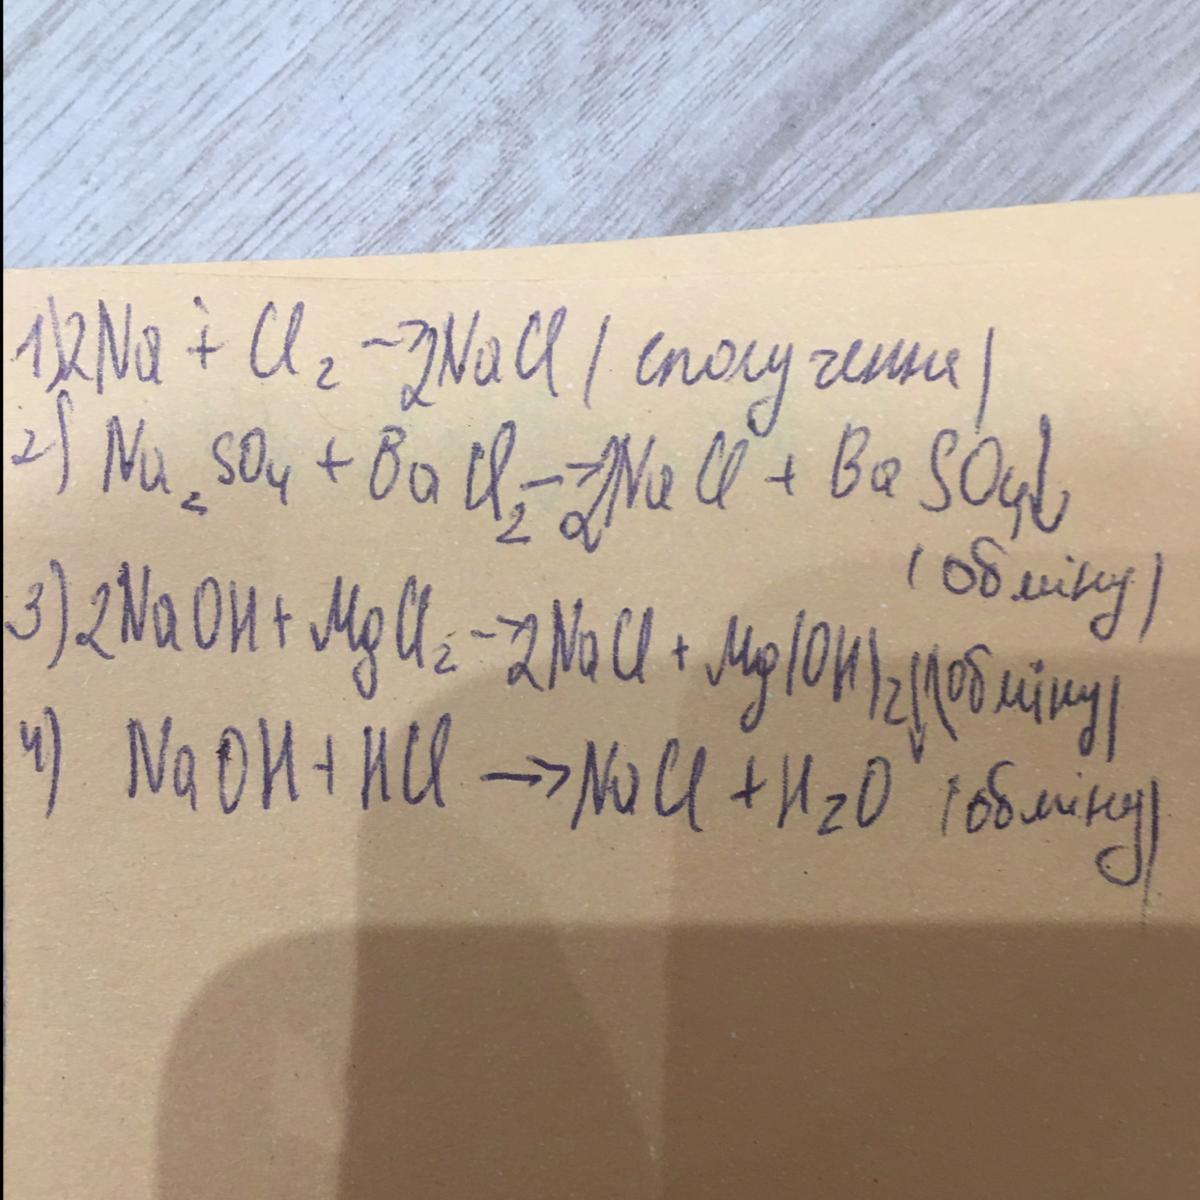 1) 2Na + Cl₂ → 2NaCl (сполучення)
2) Na₂SO₄ + BaCl₂ → 2NaCl + BaSO₄↓
(обміну)
3) 2NaOH + MgCl₂ → 2NaCl + Mg(OH)₂↓ (обміну)
4) NaOH + HCl → NaCl + H₂O (обміну)